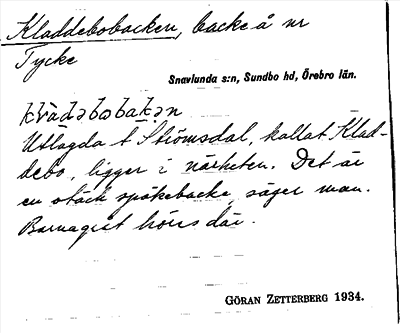 Kladdebobacken, backe å nr
Tycke
Snavlunda s:n, Sundbo hd, Örebro län.
kvàdəbobakən
Utlagda t Strömsdal, kallat Klad-
debo, ligger i närheten. Det är
en otäck spökebacke, säger man.
Barnagret höres där.
GÖRAN ZETTERBERG 1934.